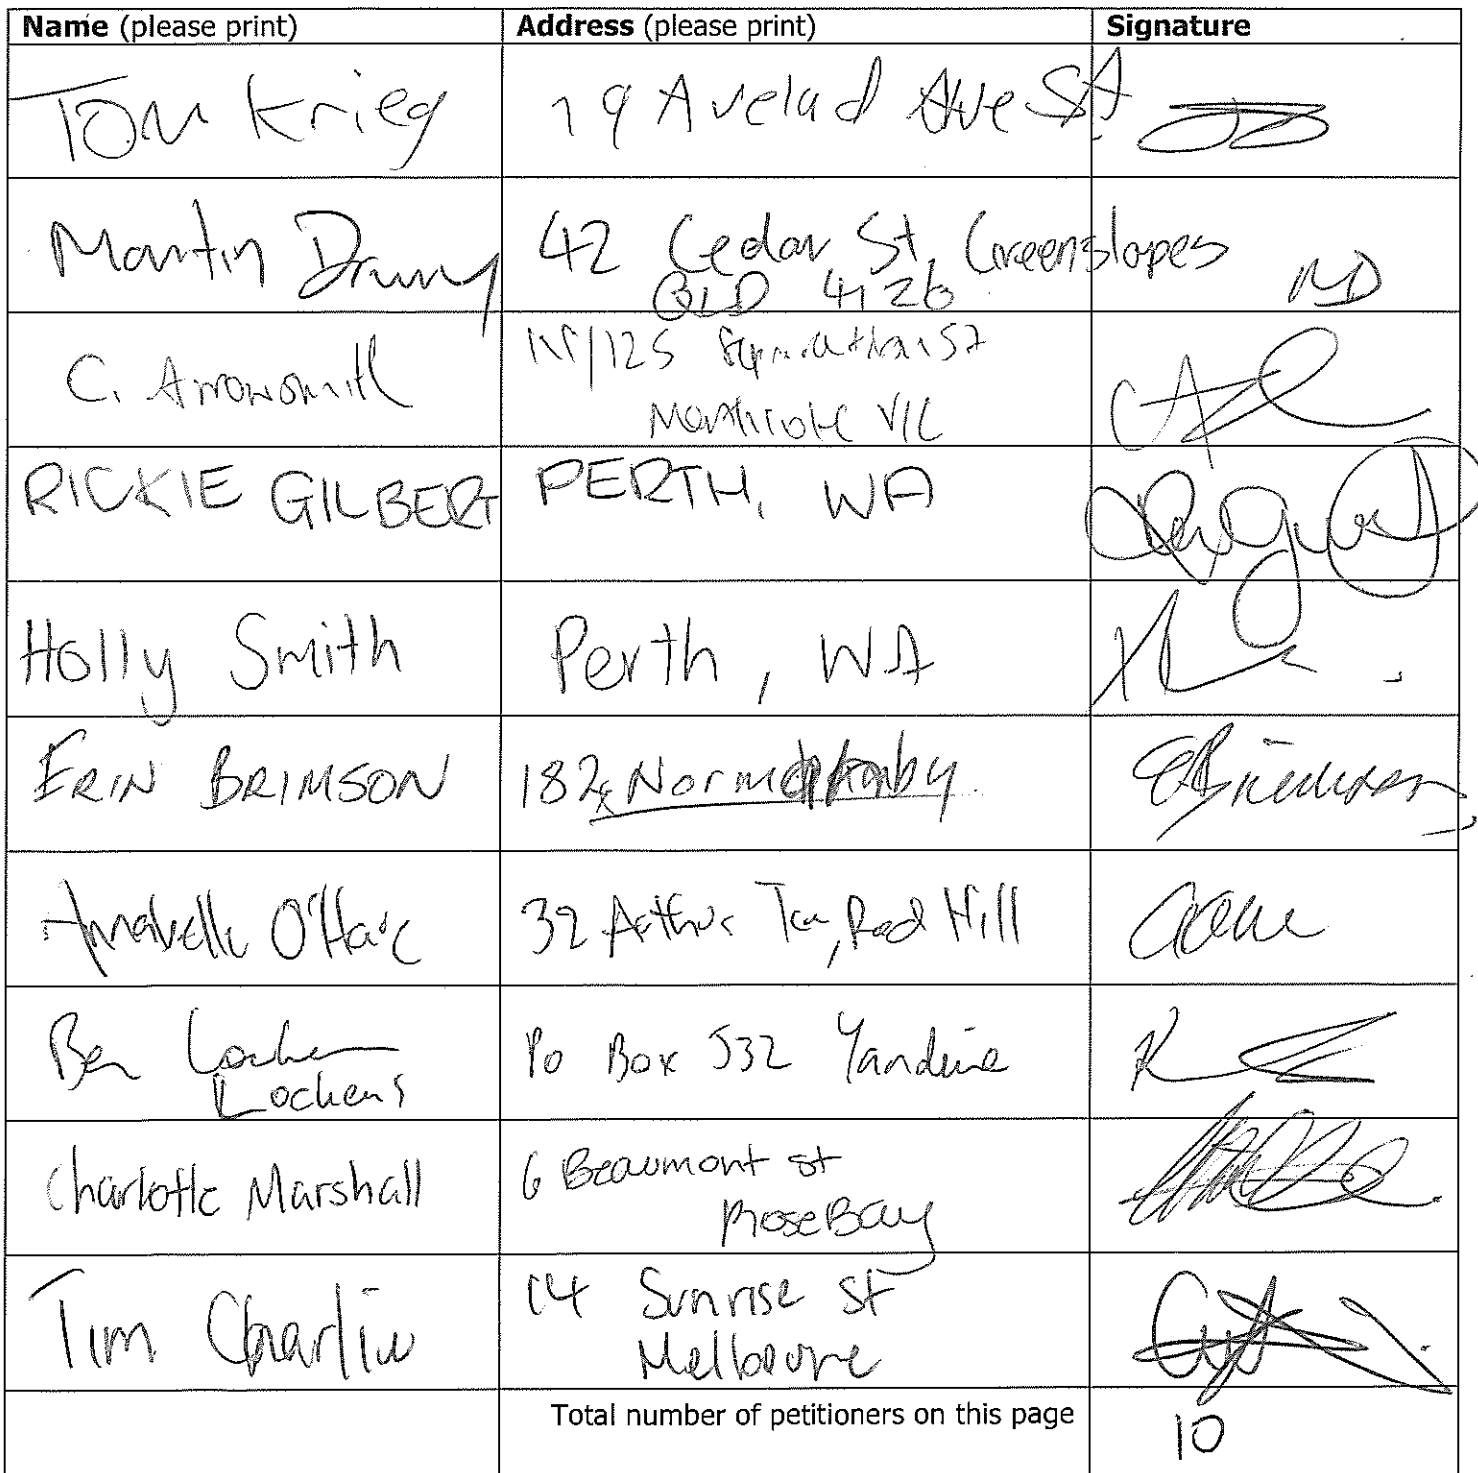 Name (please print) Address (please print) Signature
Tom Krieg 19 Avelad Ave St
Martin Drury 42 Cedar St, Greenslopes
QLD 4120 MD
C. Arrowsmith 125 St
Northcote VIC
RICKIE GILBERT PERTH, WA
Holly Smith Perth, WA
ERIN BRIMSON 182 Normanby
Annabelle O'Hare 32 Arthur Tce, Red Hill
Ben Lochens PO Box 532 Yandina
Lochens
Charlotte Marshall 6 Beaumont st
Rose Bay
Tim Charliw 14 Sunrise st
Melbourne
Total number of petitioners on this page 10